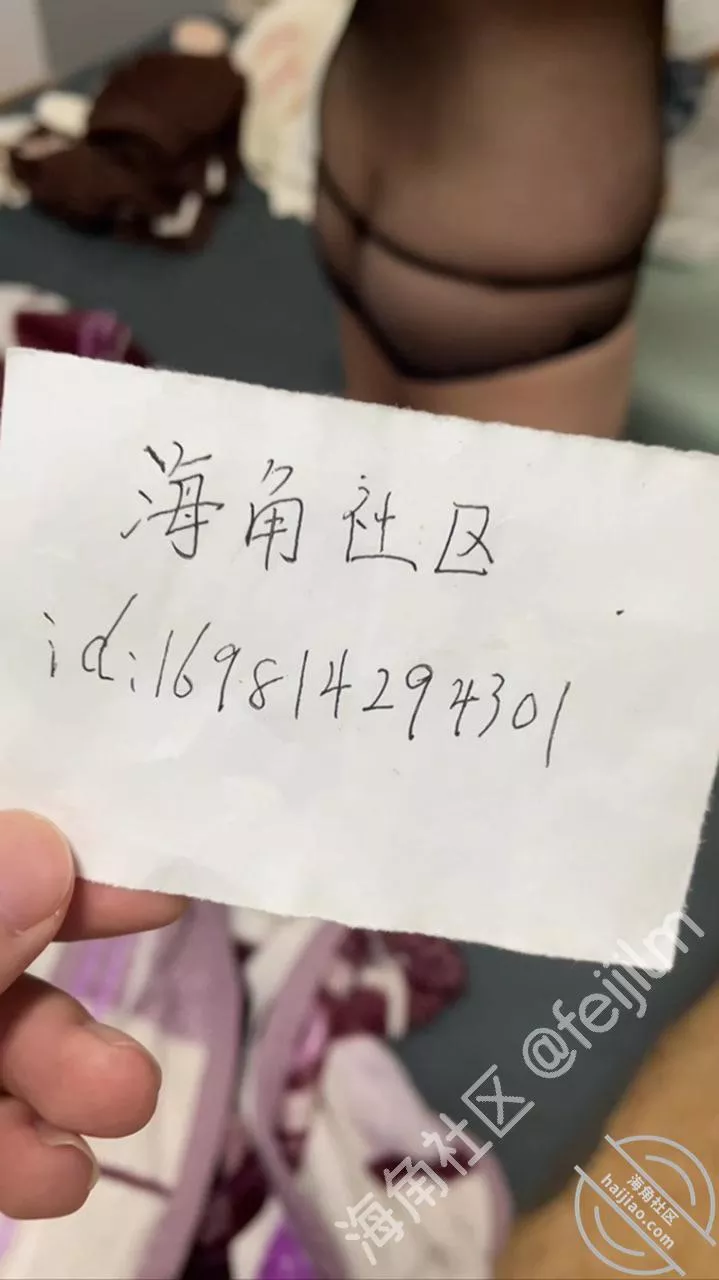 海角社区
id:169814294301
海角社区 @feijlm
海角社区
haijiao.com